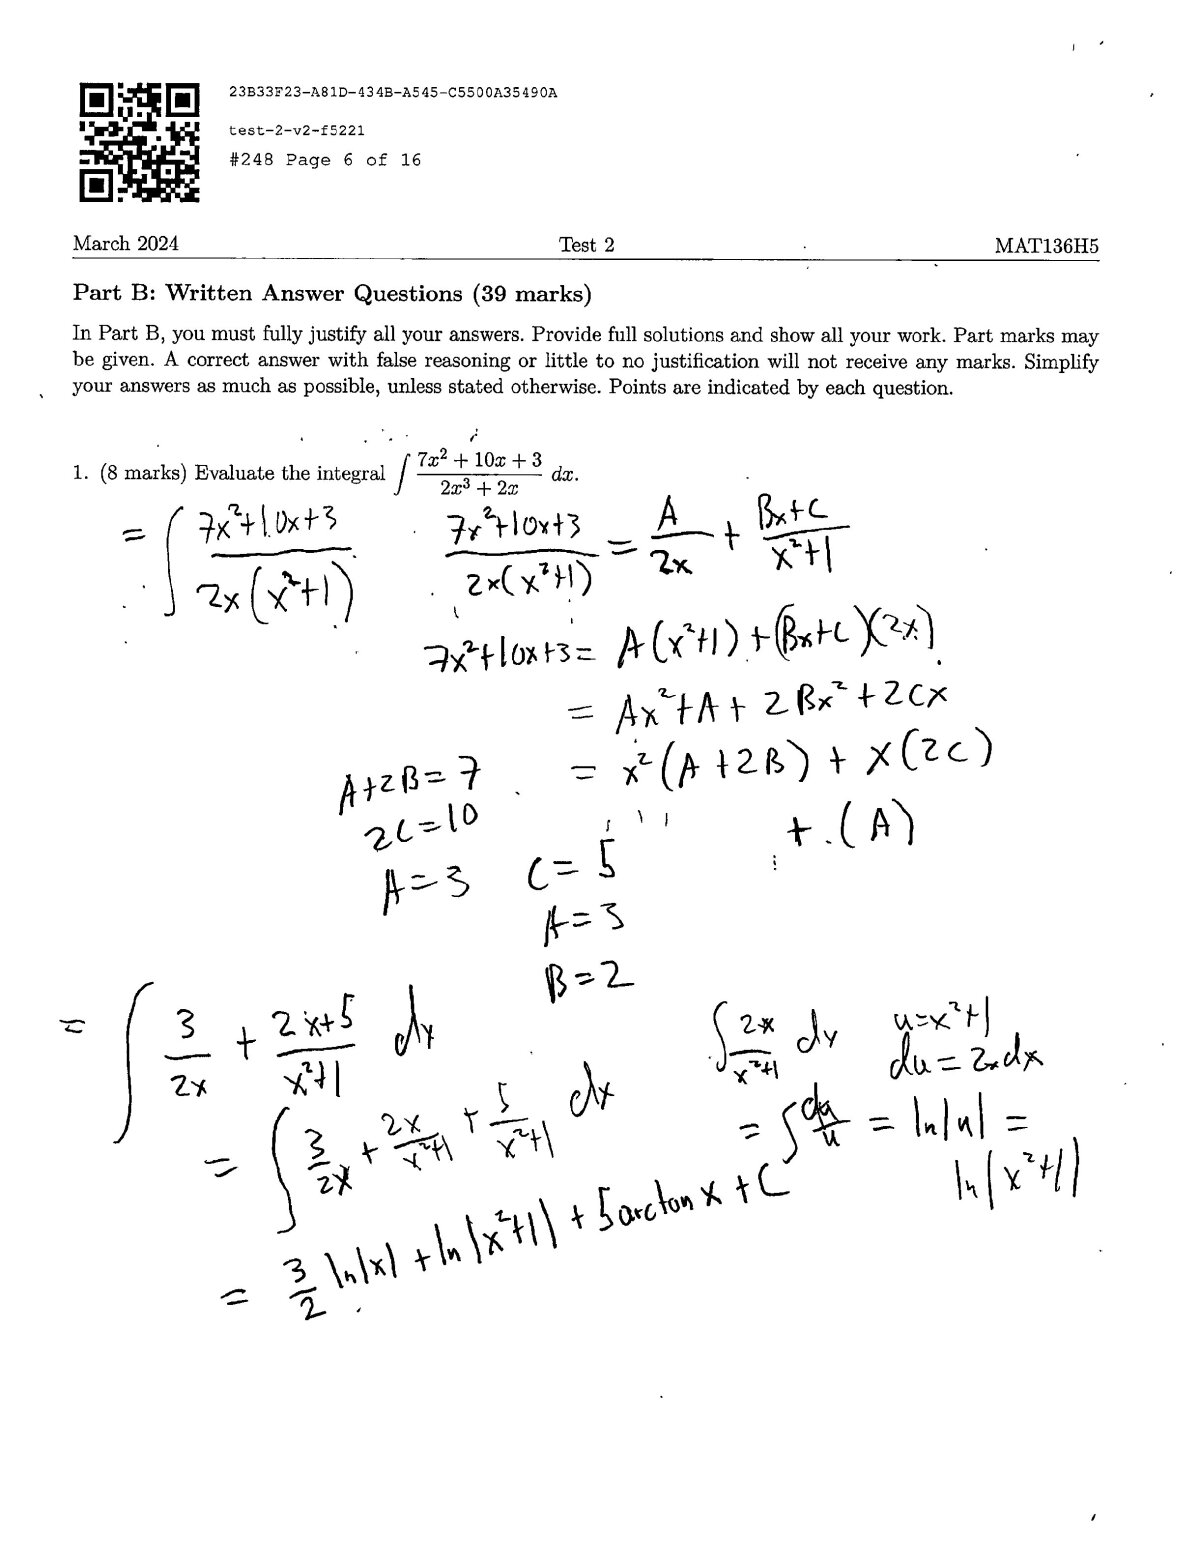 23B33F23-A81D-434B-A545-C5500A35490A
test-2-v2-f5221
#248 Page 6 of 16
March 2024 Test 2 MAT136H5
Part B: Written Answer Questions (39 marks)
In Part B, you must fully justify all your answers. Provide full solutions and show all your work. Part marks may
be given. A correct answer with false reasoning or little to no justification will not receive any marks. Simplify
your answers as much as possible, unless stated otherwise. Points are indicated by each question.
1. (8 marks) Evaluate the integral ∫ (7x² + 10x + 3)/(2x³ + 2x) dx.
= ∫ (7x²+10x+3)/(2x(x²+1))
(7x²+10x+3)/(2x(x²+1)) = A/(2x) + (Bx+C)/(x²+1)
7x²+10x+3 = A(x²+1) + (Bx+C)(2x)
= Ax²+A+2Bx²+2Cx
= x²(A+2B) + x(2C)
+ (A)
A+2B=7
2C=10
A=3
C=5
A=3
B=2
= ∫ 3/(2x) + (2x+5)/(x²+1) dx
= ∫ 3/(2x) + 2x/(x²+1) + 5/(x²+1) dx
= 3/2 ln|x| + ln|x²+1| + 5arctan x + C
∫ 2x/(x²+1) dx
u=x²+1
du=2xdx
= ∫ du/u = ln|u| =
ln|x²+1|